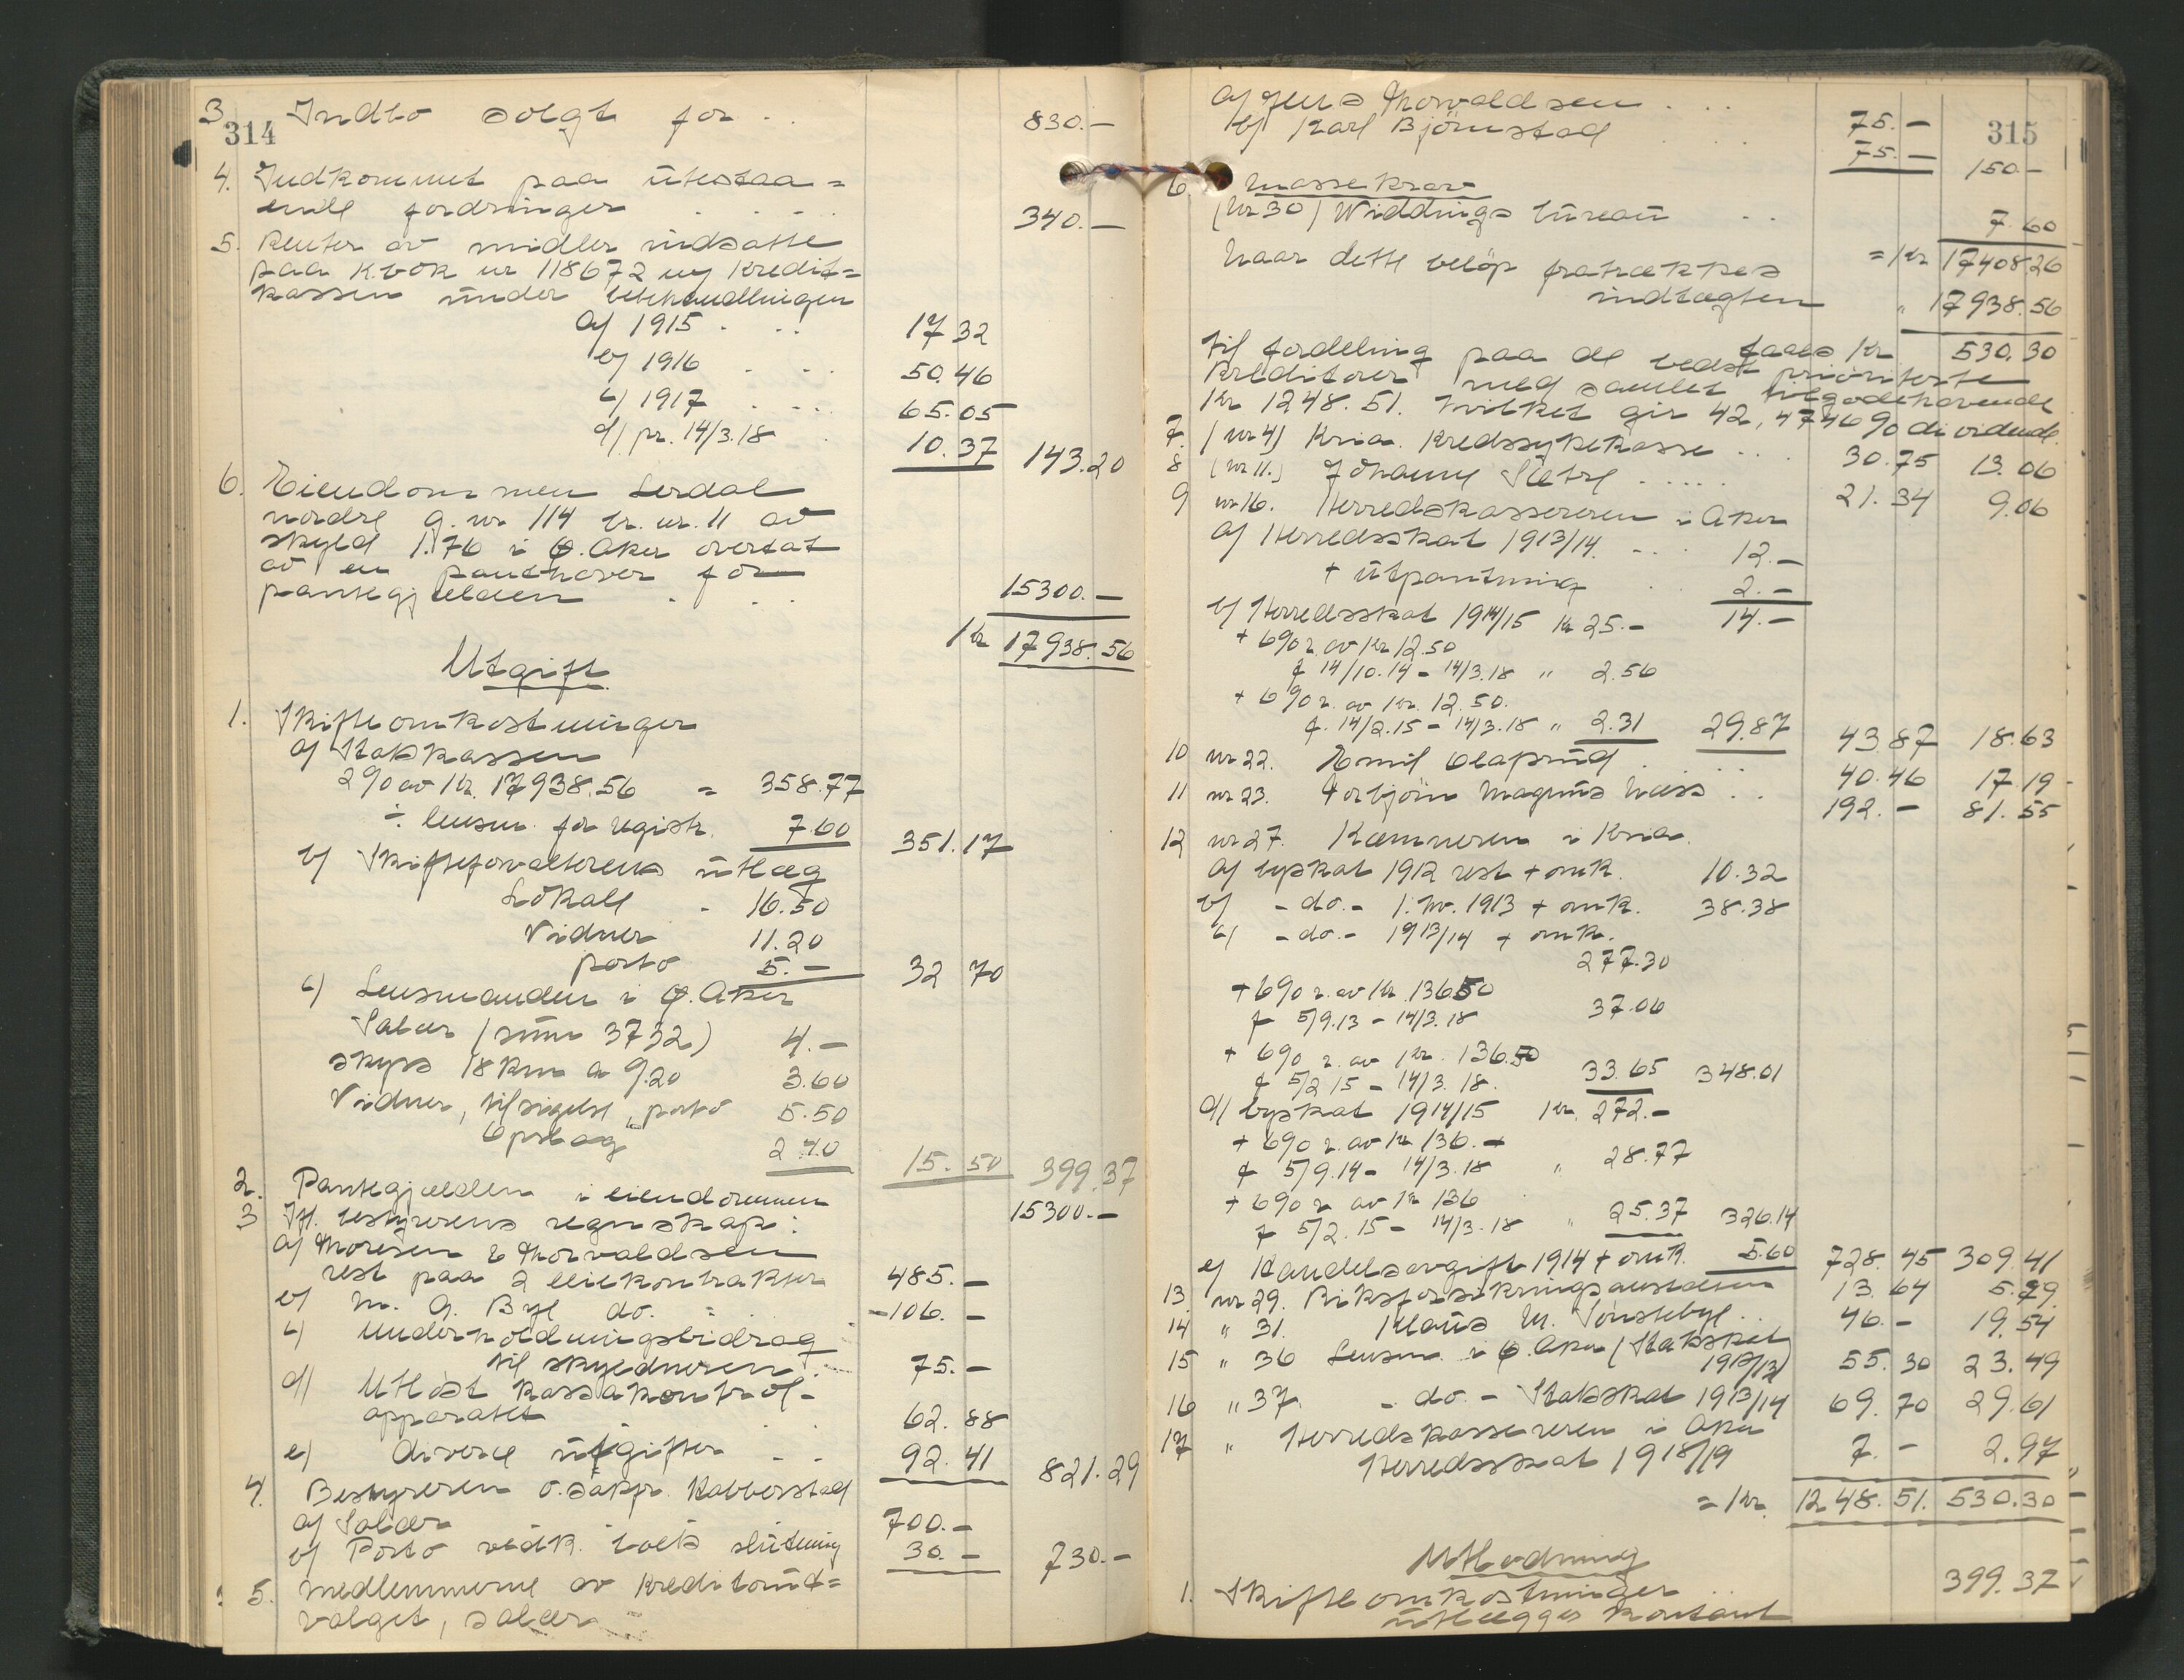 314
3 Indbo solgt for . . 830.—
4. Indkommet paa utestaa=
ende fordringer . . . . 340.—
5. Renter av midler indsatte
paa K.bok nr 118672 i Kredit=
kassen under bobehandlingen
a) 1915 . . . 17 32
b) 1916 . . . 50.46
c) 1917 . . . 65.05
d) pr. 14/3.18 . 10.37 143.20
6. Eiendommen Lerdal
nordre g. nr 114 br. nr. 11 av
skyld 1.76 i Ø. Aker overtat
av en panthaver for
pantegjælden . . . 15300.—
Kr 17938.56
Utgift
1. Skifteomkostninger
a) Statskassen
2% av Kr. 17938.56 = 358.77
÷ lensm. for registr. 7.60 351.17
b) Skifteforvalterens utlæg
Lokale - 16.50
Vidner 11.20
porto 5.— 32 70
c) Lensmanden i Ø. Aker
Salær (sum 3732) 4.—
skyss 18 km a 0.20 3.60
Vidner, tilsigelse, porto 5.50
Opslag 2.40 15.50 399.37
2. Pantegjælden i eiendommen 15300.—
3 Ifl. bestyrerens regnskap:
a) Thoresen & Thorvaldsen
rest paa 2 leiekontrakter 485.—
b) M. G. Bye do. - 106.—
c) Underholdningsbidrag
til skyldneren . 75.—
d) Utløst kassakontrol-
apparatet . . . 62.88
e) Diverse utgifter . . 92.41 821.29
4. Bestyreren o.sakfr. Kabberstad
a) Salær 700.—
b) Porto vedk. boets slutning 30.— 730.—
5. Medlemmerne av kreditorut=
valget, salær
315
a) Jens Thorvaldsen . . . 75.—
b) Karl Bjørnstad . . . 75.— 150.—
6. Massekrav
(Nr 30) Widdings bureau . . 7.60
= Kr 17408.26
Naar dette beløp fratrækkes
indtægten " 17938.56
faaes Kr 530.30
til fordeling paa de bedst prioriterte
kreditorer med samlet tilgodehavende
Kr 1248.51. hvilket gir 42,4746% dividende.
7. (nr 4) Kria. Kredssykekasse . . . 30.75 13.06
8 (nr 11.) Johanne Sætre . . . . . 21.34 9.06
9 nr 16. Herredskassereren i Aker
a) Herredsskat 1913/14. . . . 12.—
+ utpantning . 2.—
14.—
b) Herredsskat 1914/15 Kr 25.—
+ 6% r. av Kr 12.50
f 14/10.14 - 14/3.18 " 2.56
+ 6% r. av Kr. 12.50.
f. 14/2.15 - 14/3.18 " 2.31 29.87 43.87 18.63
10 nr 22. Emil Olaprud . . . 40.46 17.19
11 nr 23. Torbjörn Magnus Næss . . 192.— 81.55
12 nr 27. Kæmneren i Kria.
a) byskat 1912 rest + omk. 10.32
b) - do. - 1. hv. 1913 + omk. 38.38
c) - do. - 1913/14 + omk.
277.30
+ 6% r. av Kr. 136.50
f 5/9.13 - 14/3.18 37.06
+ 6% r. av Kr. 136.50
f 5/2 15 - 14/3.18. 33.65 348.01
d) byskat 1914/15 Kr. 272.—
+ 6% r. av Kr 136.—
f 5/9.14 - 14/3.18 " 28.77
+ 6% r av Kr 136
f 5/2.15 - 14/3.18 " 25.37 326.14
e) Handelsavgift 1914 + omk. 5.60 728.45 309.41
13. nr 29. Riksforsikringsanstalten 13.64 5.79
14 " 31. Klaus M. Tønsebye . . 46.— 19.54
15 " 36 Lensm. i Ø. Aker (Statsskat
1912/13) 55.30 23.49
16 " 37. - do. - Statsskat 1913/14 69.70 29.61
17 " Herredskassereren i Aker
Herredsskat 1918/19 7.— 2.97
= Kr. 1248.51. 530.30
Utlodning
1. Skifteomkostninger . . 399.37
utlægges kontant